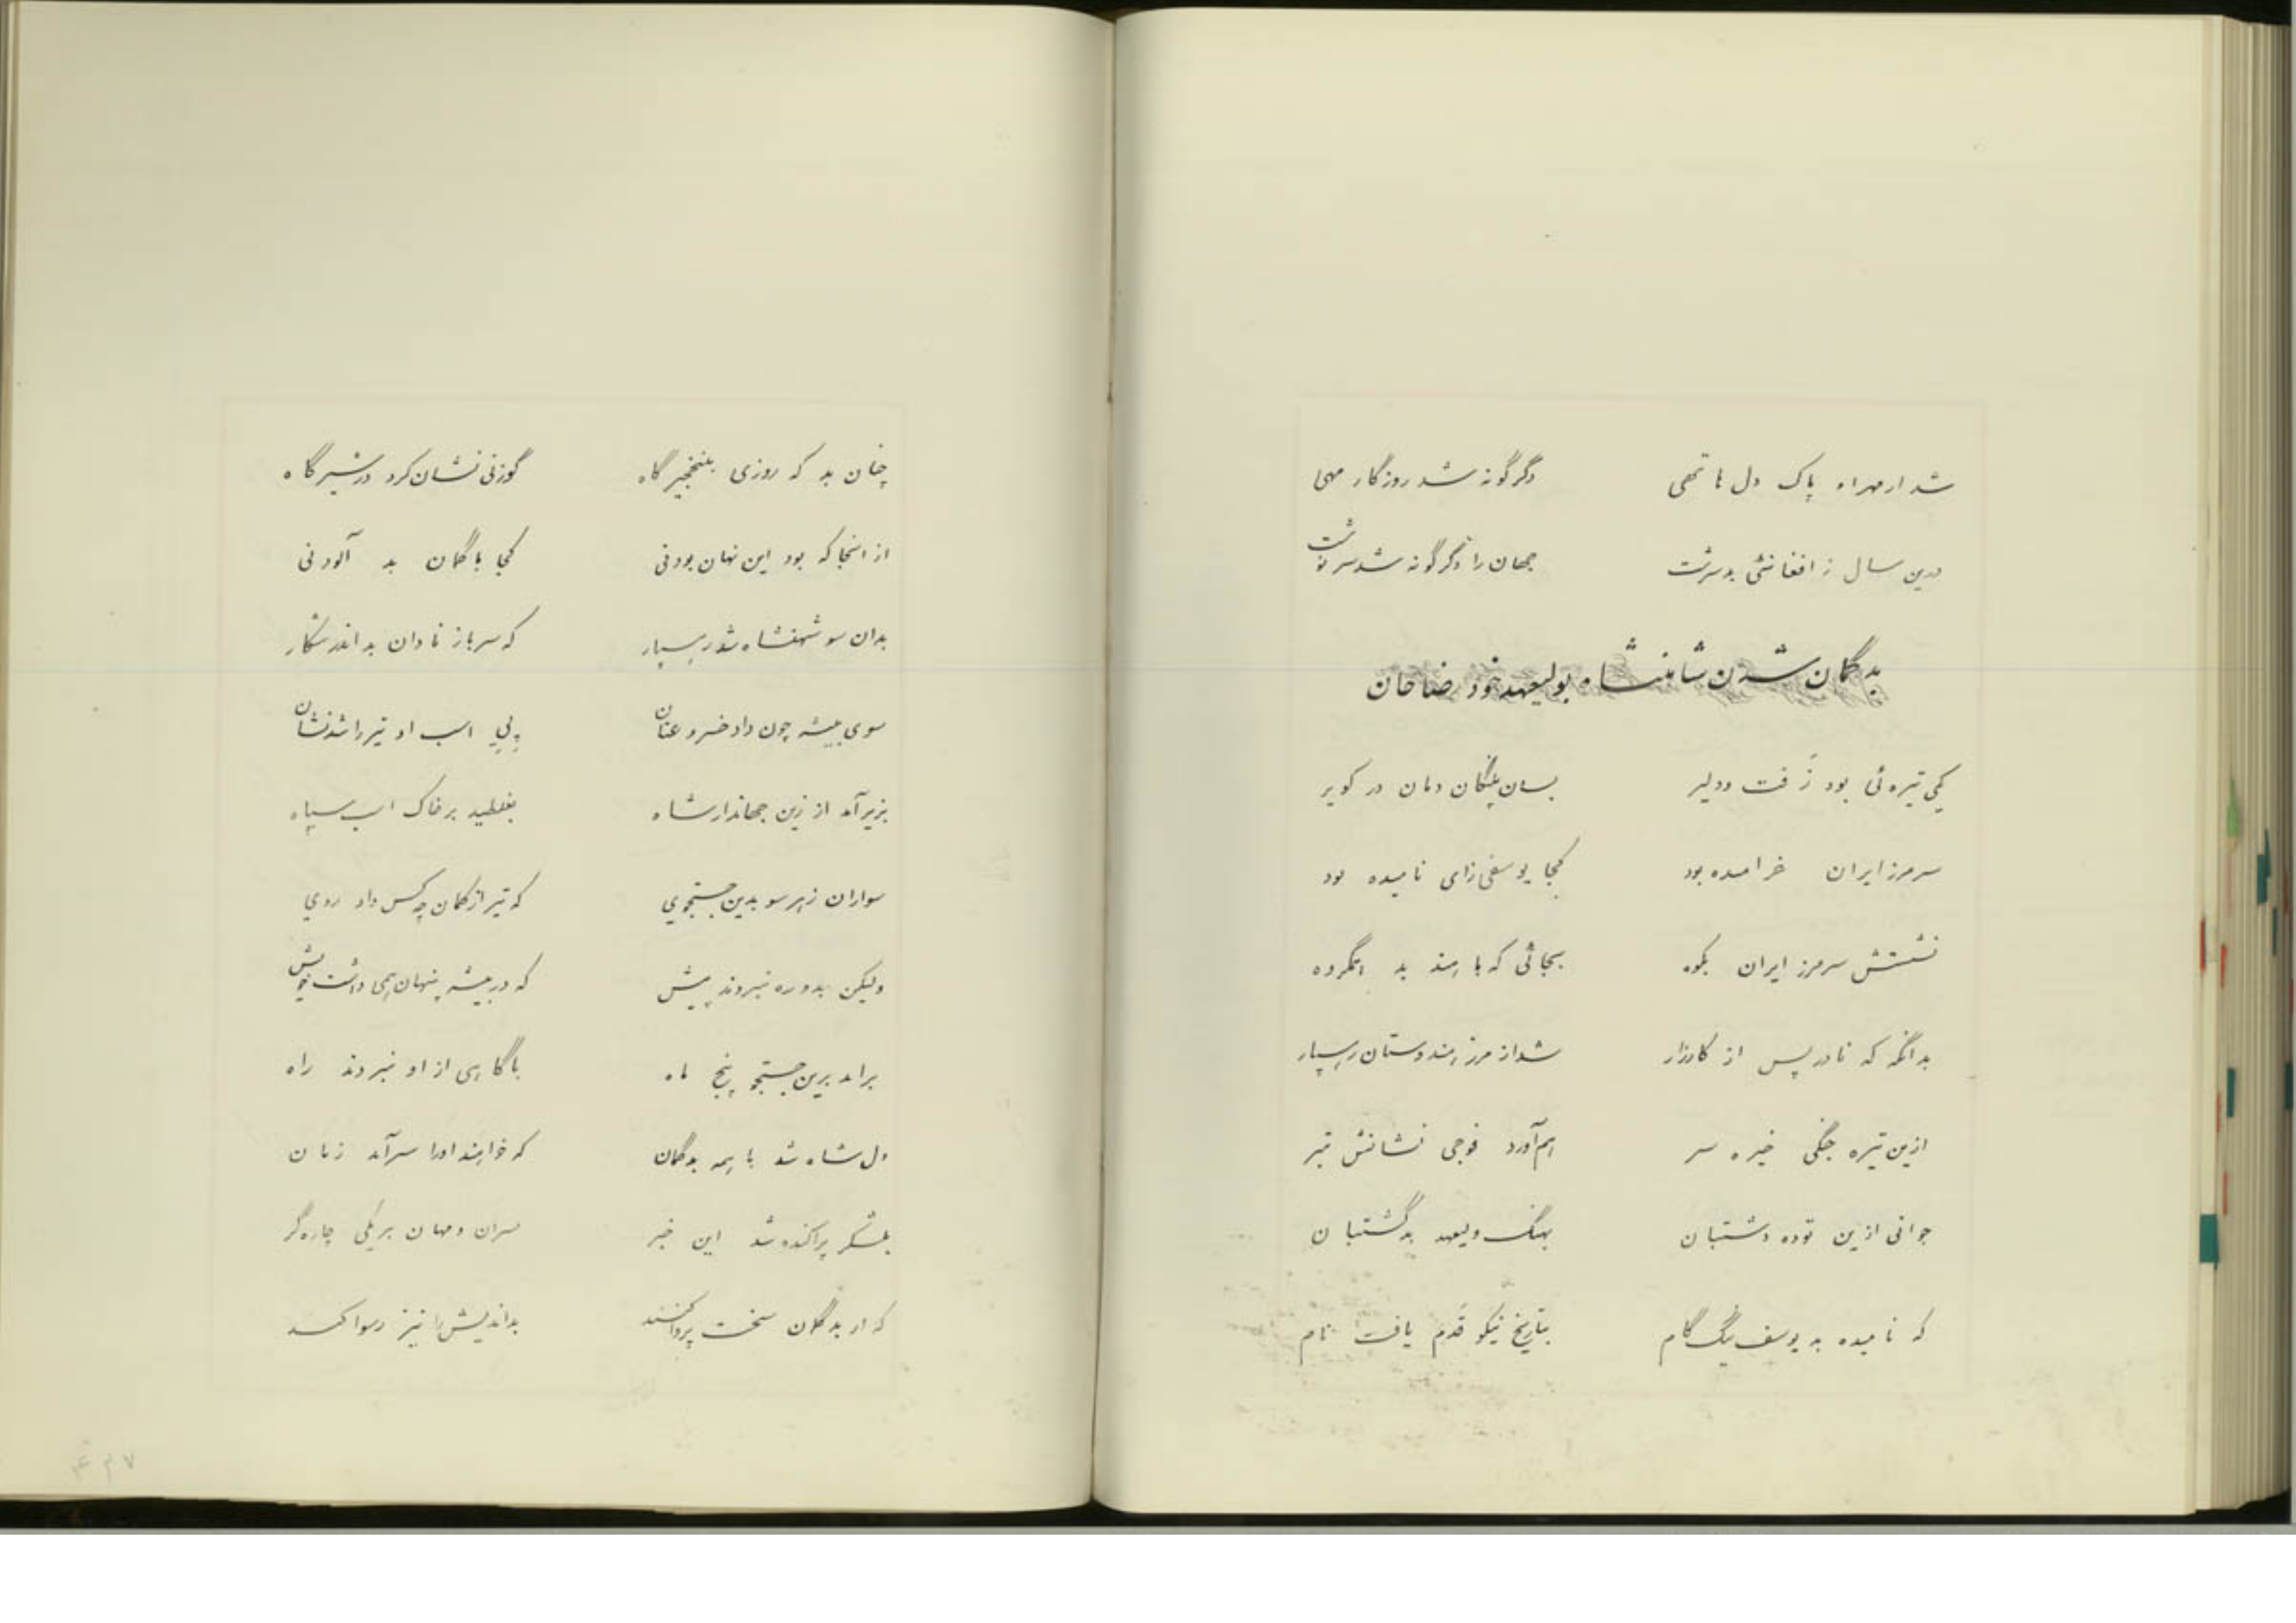 شد از مهراه پاک دل ما تهی دگرگونه شد روزگار مهی
درین سال ز افغانئی بدسرشت جهان را دگرگونه شد سرنوشت
بدگمان شدن شاهنشاه بولیعهد خود رضاخان
یکی تیره‌ئی بود زَفت و دلیر بسان پلنگان دمان در کویر
سر مرز ایران خرامیده بود کجا یوسفی زای نامیده بود
نشستش سر مرز ایران بکوه بجائی که با هند بد همگروه
بدانگه که نادر پس از کارزار شد از مرز هندوستان رهسپار
ازین تیره جنگی خیره سر هم آورد فوجی نشانش تبر
جوانی ازین توده دشتبان بهنگ ولیعهد بد گشتبان
که نامیده به یوسف نیک گام بتاریخ نیکو قَدَم یافت نام
چنان بد که روزی بنخجیرگاه گوزنی نشان کرد در شیرگاه
از انجا که بود این نهان بودنی کجا با گمان بد آلودنی
بدان سو شهنشاه شد رهسپار که سرباز نادان بد اندر شکار
سوی بیشه چون داد خسرو عنان پی اسب او تیر را شد نشان
بزیر آمد از زین جهاندار شاه بغلطید بر خاک اسب سیاه
سواران ز هر سو بدین جستجوی که تیر از کمان چه کس داد روی
ولیکن بدو ره نبردند پیش که در بیشه پنهان همی داشت خویش
برامد برین جستجو پنج ماه باگاهی از او نبردند راه
دل شاه شد با همه بدگمان که خواهند او را سرآمد زمان
بلشکر پراکنده شد این خبر سران و مهان هر یکی چاره‌گر
که از بدگمان سخت پروا کنند بداندیش را نیز رسوا کنند